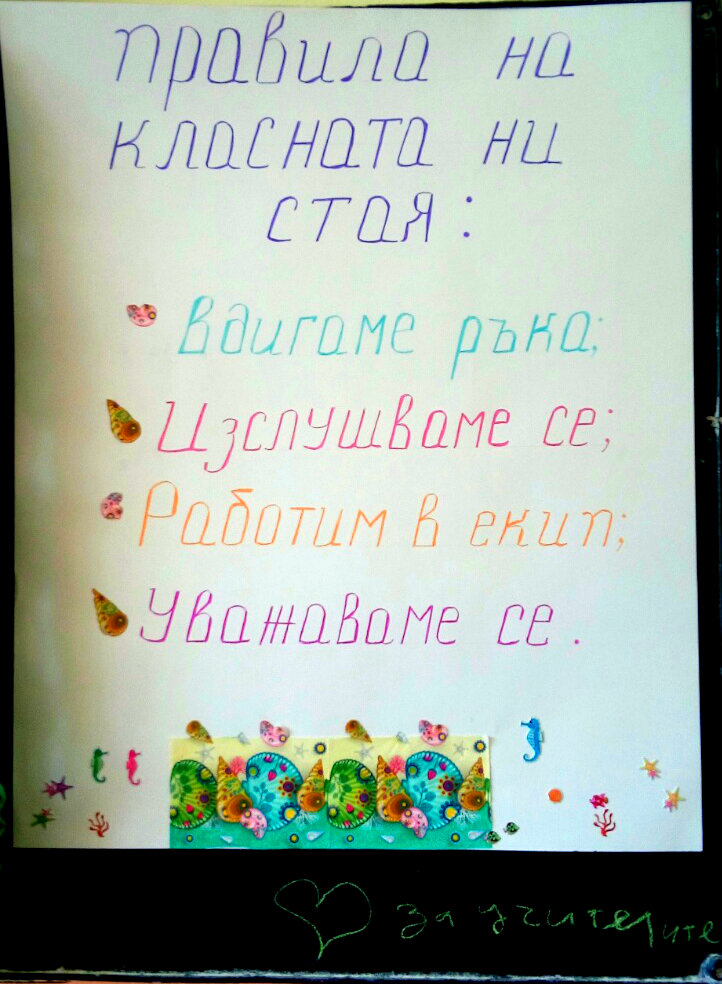 правила на
класната ни
стая:
вдигаме ръка;
Изслушваме се;
Работим в екип;
Уважаваме се.
за учителите